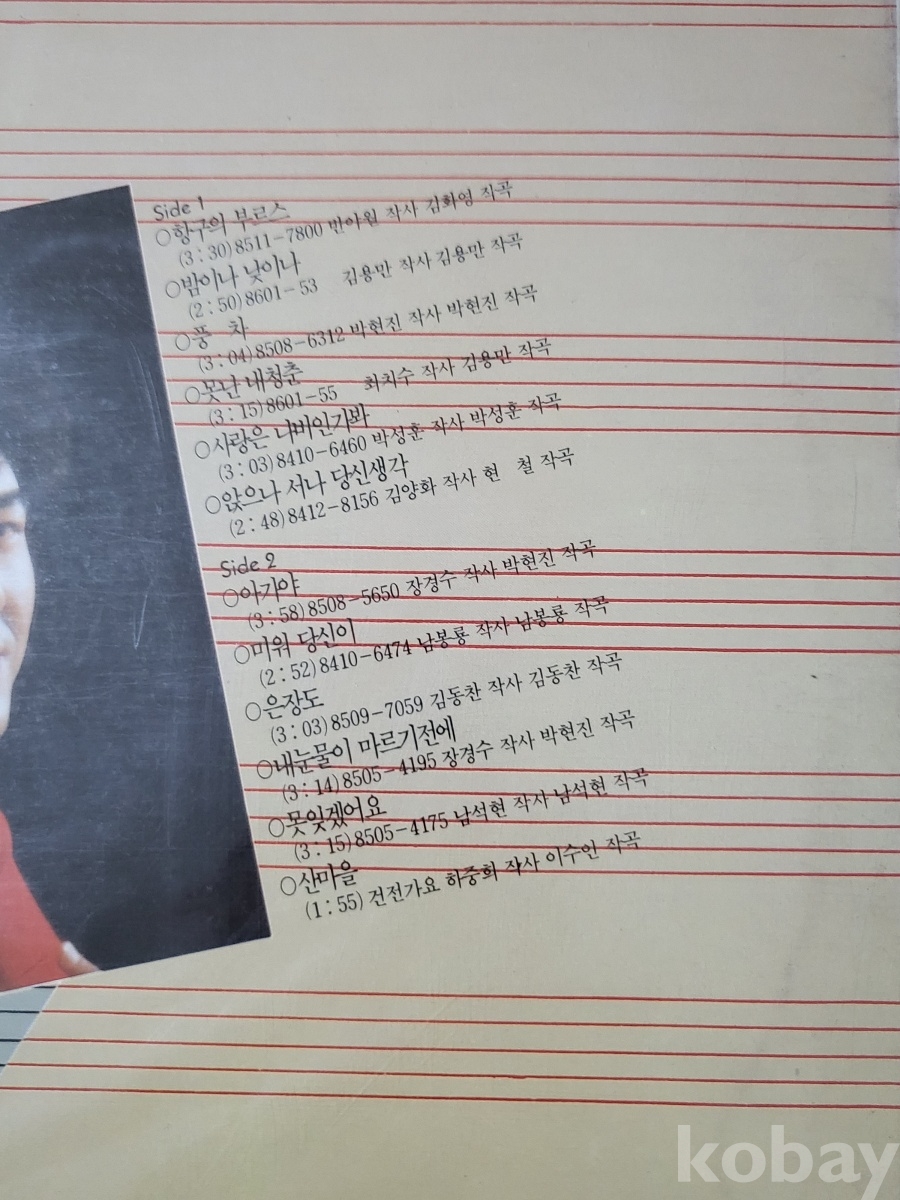 Side 1
○항구의 부르스
(3:30)8511-7800 반야월 작사 김화영 작곡
○밤이나 낮이나
(2:50)8601-53 김용만 작사 김용만 작곡
○풍 차
(3:04)8508-6312 박현진 작사 박현진 작곡
○못난 내청춘
(3:15)8601-55 최치수 작사 김용만 작곡
○사랑은 나비인가봐
(3:03)8410-6460 박성훈 작사 박성훈 작곡
○앉으나 서나 당신생각
(2:48)8412-8156 김양화 작사 현 철 작곡
Side 2
○아기야
(3:58)8508-5650 장경수 작사 박현진 작곡
○미워 당신이
(2:52)8410-6474 남봉룡 작사 남봉룡 작곡
○은장도
(3:03)8509-7059 김동찬 작사 김동찬 작곡
○내눈물이 마르기전에
(3:14)8505-4195 장경수 작사 박현진 작곡
○못잊겠어요
(3:15)8505-4175 남석현 작사 남석현 작곡
○산마을
(1:55) 건전가요 하중희 작사 이수인 작곡
kobay